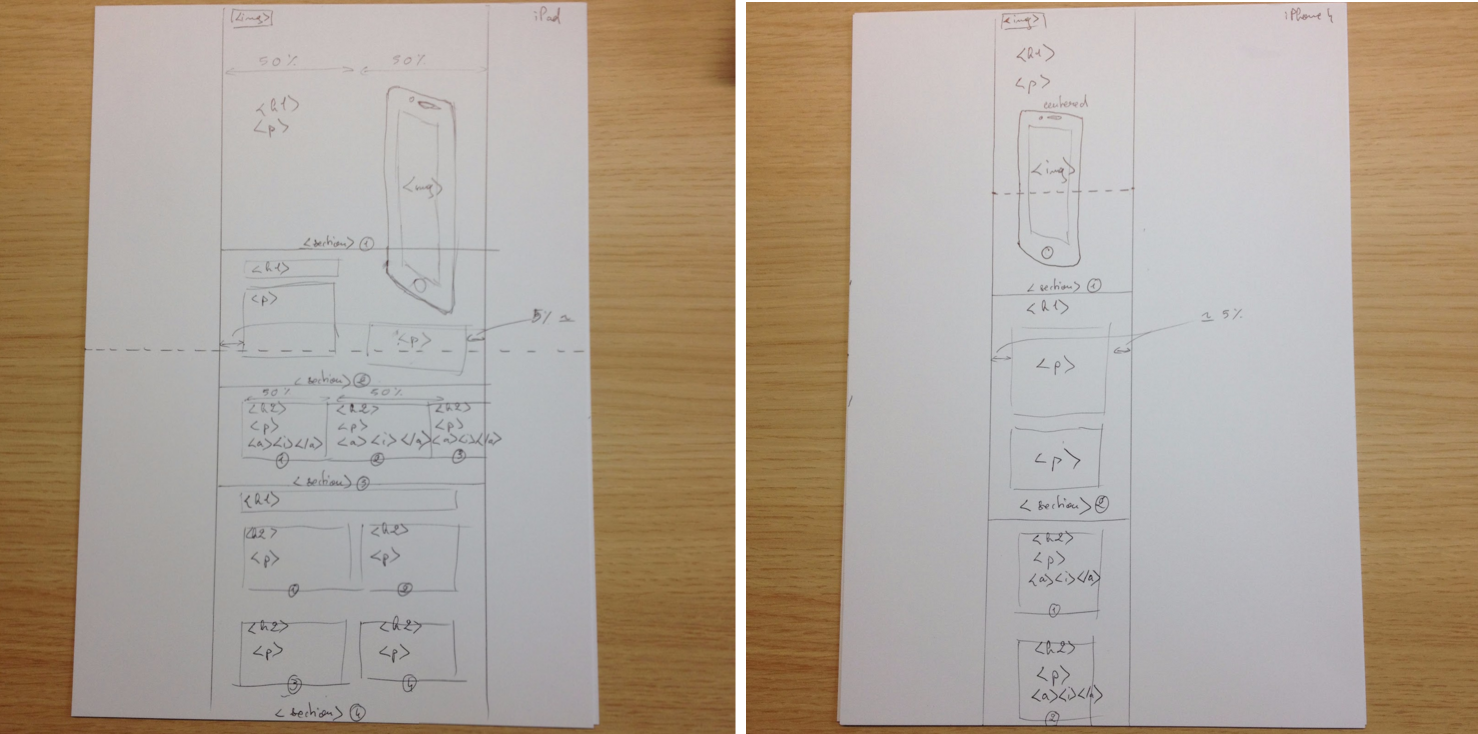 <img>
iPad
50%
50%
<h1>
<p>
<img>
<section> 1
<h1>
<p>
<p>
5% ~
<section> 2
50%
50%
<h2>
<p>
<a><i></a>
1
<h2>
<p>
<a><i></a>
2
<h2>
<p>
<a><i></a>
3
<section> 3
<h1>
<h2>
<p>
1
<h2>
<p>
2
<h2>
<p>
3
<h2>
<p>
4
<section> 4
<img>
iPhone 4
<h1>
<p>
centered
<img>
<section> 1
<h1>
~ 5%
<p>
<p>
<section> 2
<h2>
<p>
<a><i></a>
1
<h2>
<p>
<a><i></a>
2